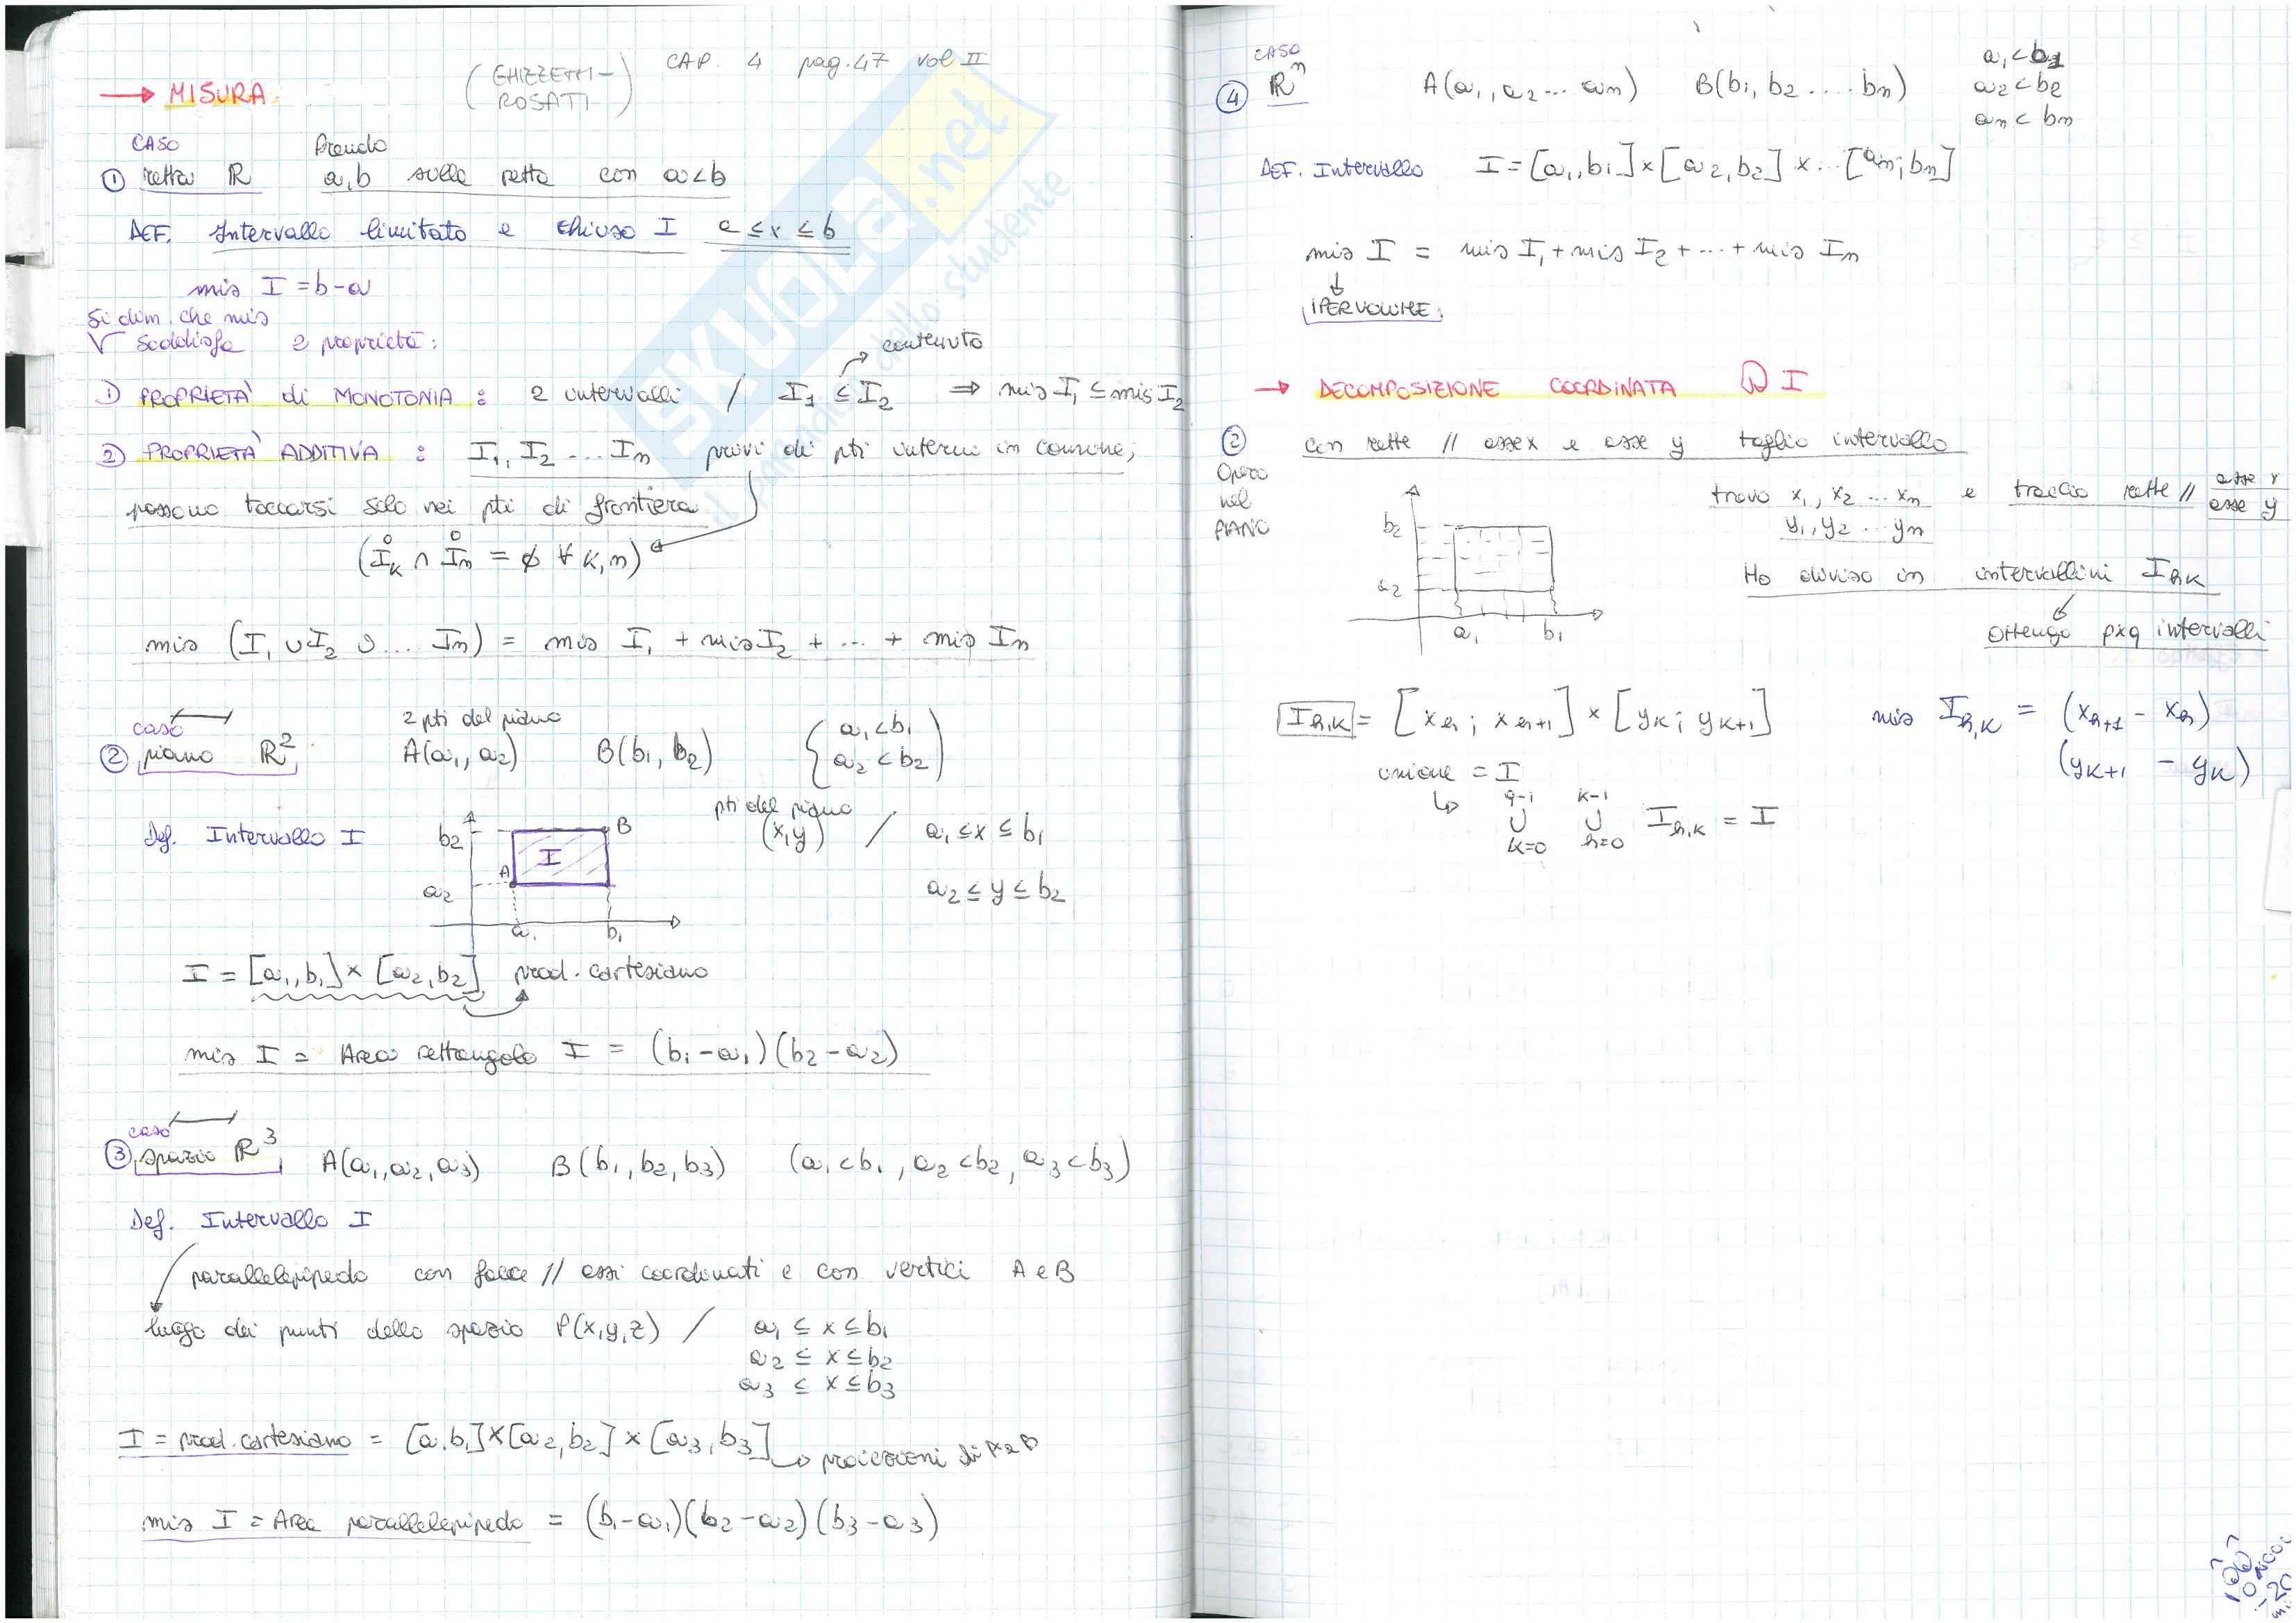 → MISURA (GHIZZETTI - ROSATI) CAP. 4 pag. 47 vol II
CASO Prendo
① retta ℝ a, b sulla retta con a < b
DEF. Intervallo limitato e chiuso I a ≤ x ≤ b
mis I = b-a
Si dim. che mis
soddisfa 2 proprietà:
contenuto
1) PROPRIETÀ di MONOTONIA: 2 intervalli / I₁ ⊆ I₂ ⇒ mis I₁ ≤ mis I₂
2) PROPRIETÀ ADDITIVA: I₁, I₂ ... Iₙ privi di pti interni in comune;
possono toccarsi solo nei pti di frontiera
(I̊ₖ ∩ I̊ₙ = ∅ ∀ k, n)
mis (I₁ ∪ I₂ ∪ ... Iₙ) = mis I₁ + mis I₂ + ... + mis Iₙ
caso 2 pti del piano
② piano ℝ² A(a₁, a₂) B(b₁, b₂) { a₁ < b₁
a₂ < b₂
Def. Intervallo I b₂ B I A a₂ a₁ b₁
pti del piano (x, y) / a₁ ≤ x ≤ b₁
a₂ ≤ y ≤ b₂
I = [a₁, b₁] × [a₂, b₂] prod. cartesiano
mis I = Area rettangolo I = (b₁-a₁)(b₂-a₂)
caso
③ spazio ℝ³ A(a₁, a₂, a₃) B(b₁, b₂, b₃) (a₁ < b₁, a₂ < b₂, a₃ < b₃)
Def. Intervallo I
parallelepipedo con facce // assi coordinati e con vertici A e B
luogo dei punti dello spazio P(x, y, z) / a₁ ≤ x ≤ b₁
a₂ ≤ x ≤ b₂
a₃ ≤ x ≤ b₃
I = prod. cartesiano = [a, b₁] × [a₂, b₂] × [a₃, b₃] → proiezioni di A e B
mis I = Area parallelepipedo = (b₁-a₁)(b₂-a₂)(b₃-a₃)
CASO
④ ℝⁿ A(a₁, a₂ ... aₙ) B(b₁, b₂ .... bₙ) a₁ < b₁
a₂ < b₂
aₙ < bₙ
DEF. Intervallo I = [a₁, b₁] × [a₂, b₂] × ... [aₙ; bₙ]
mis I = mis I₁ + mis I₂ + ... + mis Iₙ
↓
IPERVOLUME
→ DECOMPOSIZIONE COORDINATA DI I
② con rette // asse x e asse y taglio intervallo
Opero nel PIANO
b₂ a₂ a₁ b₁
trovo x₁, x₂ ... xₙ e traccio rette // asse x
y₁, y₂ ... yₙ asse y
Ho diviso in intervallini I h,k
ottengo p×q intervalli
I h,k = [xₕ; xₕ₊₁] × [yₖ; yₖ₊₁] mis I h,k = (xₕ₊₁ - xₕ)
(yₖ₊₁ - yₖ)
unione = I
↳ q-1 ∪ k=0 k-1 ∪ h=0 I h,k = I
SKUOLA.net